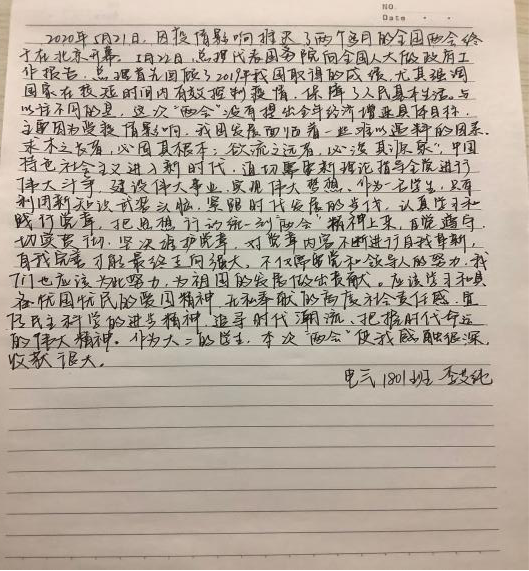 NO.
Date
2020年5月21日,因疫情影响推迟了两个多月的全国两会终
于在北京开幕。5月22日,总理代表国务院向全国人大做政府工
作报告。总理首先回顾了2019年我国取得的成绩,尤其强调
国家在较短时间内有效控制疫情,保障了人民基本生活。与
以往不同的是,这次“两会”没有提出全年经济增速具体目标,
主要因为受疫情影响,我国发展面临着一些难以逆料的因素。
求木之长者,必固其根本;欲流之远者,必浚其源泉”。中国
特色社会主义进入新时代,迫切需要新理论指导全党进行
伟大斗争,建设伟大事业,实现伟大梦想。作为一名学生,只有
利用新知识武装头脑,紧跟时代发展的步伐,认真学习和
践行党章,把思想行动统一到“两会”精神上来,自觉遵守
切实贯彻,坚决维护党章,对党章内容不断进行自我革新,
自我完善才能最终走向强大。不仅需要党和领导人的努力,我
们也应该为此努力,为祖国的发展做出贡献。应该学习和具
备忧国忧民的爱国精神,无私奉献的高度社会责任感,宣
传民主科学的进步精神,追寻时代潮流、把握时代命运
的伟大精神。作为大二的学生,本次“两会”使我感触很深,
收获很大。
电气1801班 李艾纯